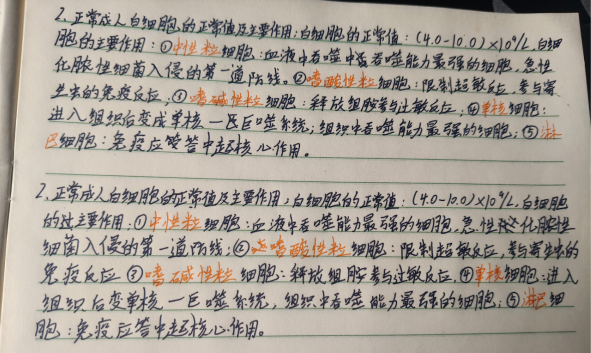 2、正常成人白细胞的正常值及主要作用：白细胞的正常值：(4.0-10.0)×10⁹/L，白细
胞的主要作用：①中性粒细胞：血液中吞噬中吞噬能力最强的细胞，急性
化脓性细菌入侵的第一道防线。②嗜酸性粒细胞：限制超敏反应，参与寄
生虫的免疫反应；③嗜碱性粒细胞：释放组胺参与过敏反应，④单核细胞：
进入组织后变成单核一巨巨噬系统；组织中吞噬能力最强的细胞；⑤淋
巴细胞：免疫应答中起核心作用。
2、正常成人白细胞的正常值及主要作用；白细胞的正常值：(4.0-10.0)×10⁹/L，白细胞
的主要作用：①中性粒细胞：血液中吞噬能力最强的细胞，急性化脓性
细菌入侵的第一道防线；②嗜酸性粒细胞：限制超敏反应，参与寄生虫的
免疫反应 ③嗜碱性粒细胞：释放组胺参与过敏反应，④单核细胞：进入
组织后变单核一巨噬系统，组织中吞噬能力最强的细胞；⑤淋巴细
胞：免疫应答中起核心作用。